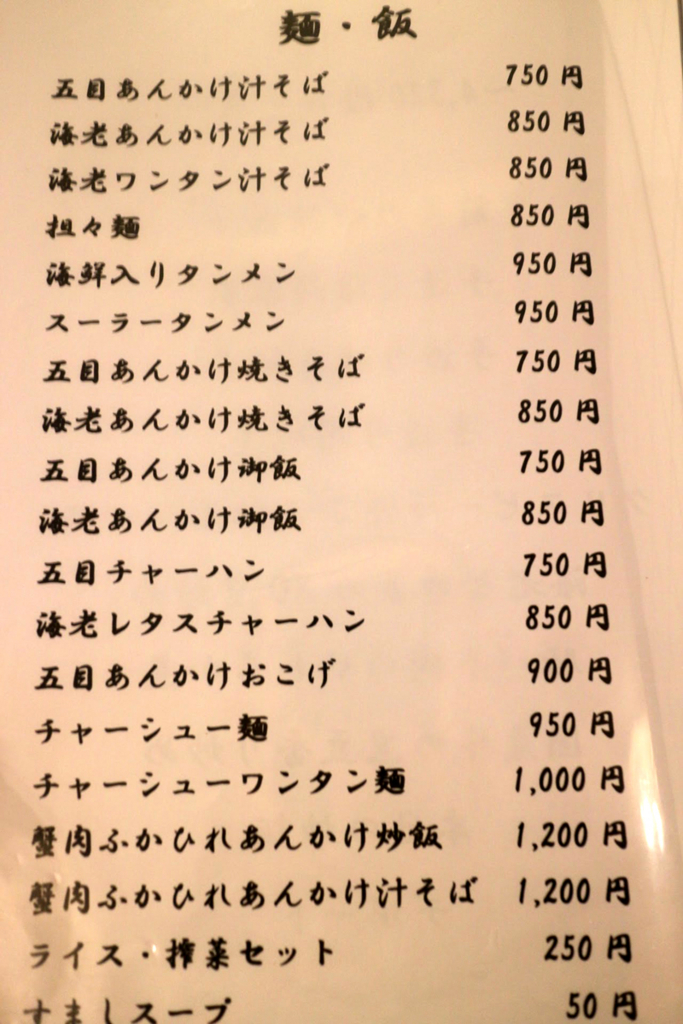 麺・飯
五目あんかけ汁そば 750 円
海老あんかけ汁そば 850 円
海老ワンタン汁そば 850 円
担々麺 850 円
海鮮入りタンメン 950 円
スーラータンメン 950 円
五目あんかけ焼きそば 750 円
海老あんかけ焼きそば 850 円
五目あんかけ御飯 750 円
海老あんかけ御飯 850 円
五目チャーハン 750 円
海老レタスチャーハン 850 円
五目あんかけおこげ 900 円
チャーシュー麺 950 円
チャーシューワンタン麺 1,000 円
蟹肉ふかひれあんかけ炒飯 1,200 円
蟹肉ふかひれあんかけ汁そば 1,200 円
ライス・搾菜セット 250 円
すましスープ 50 円